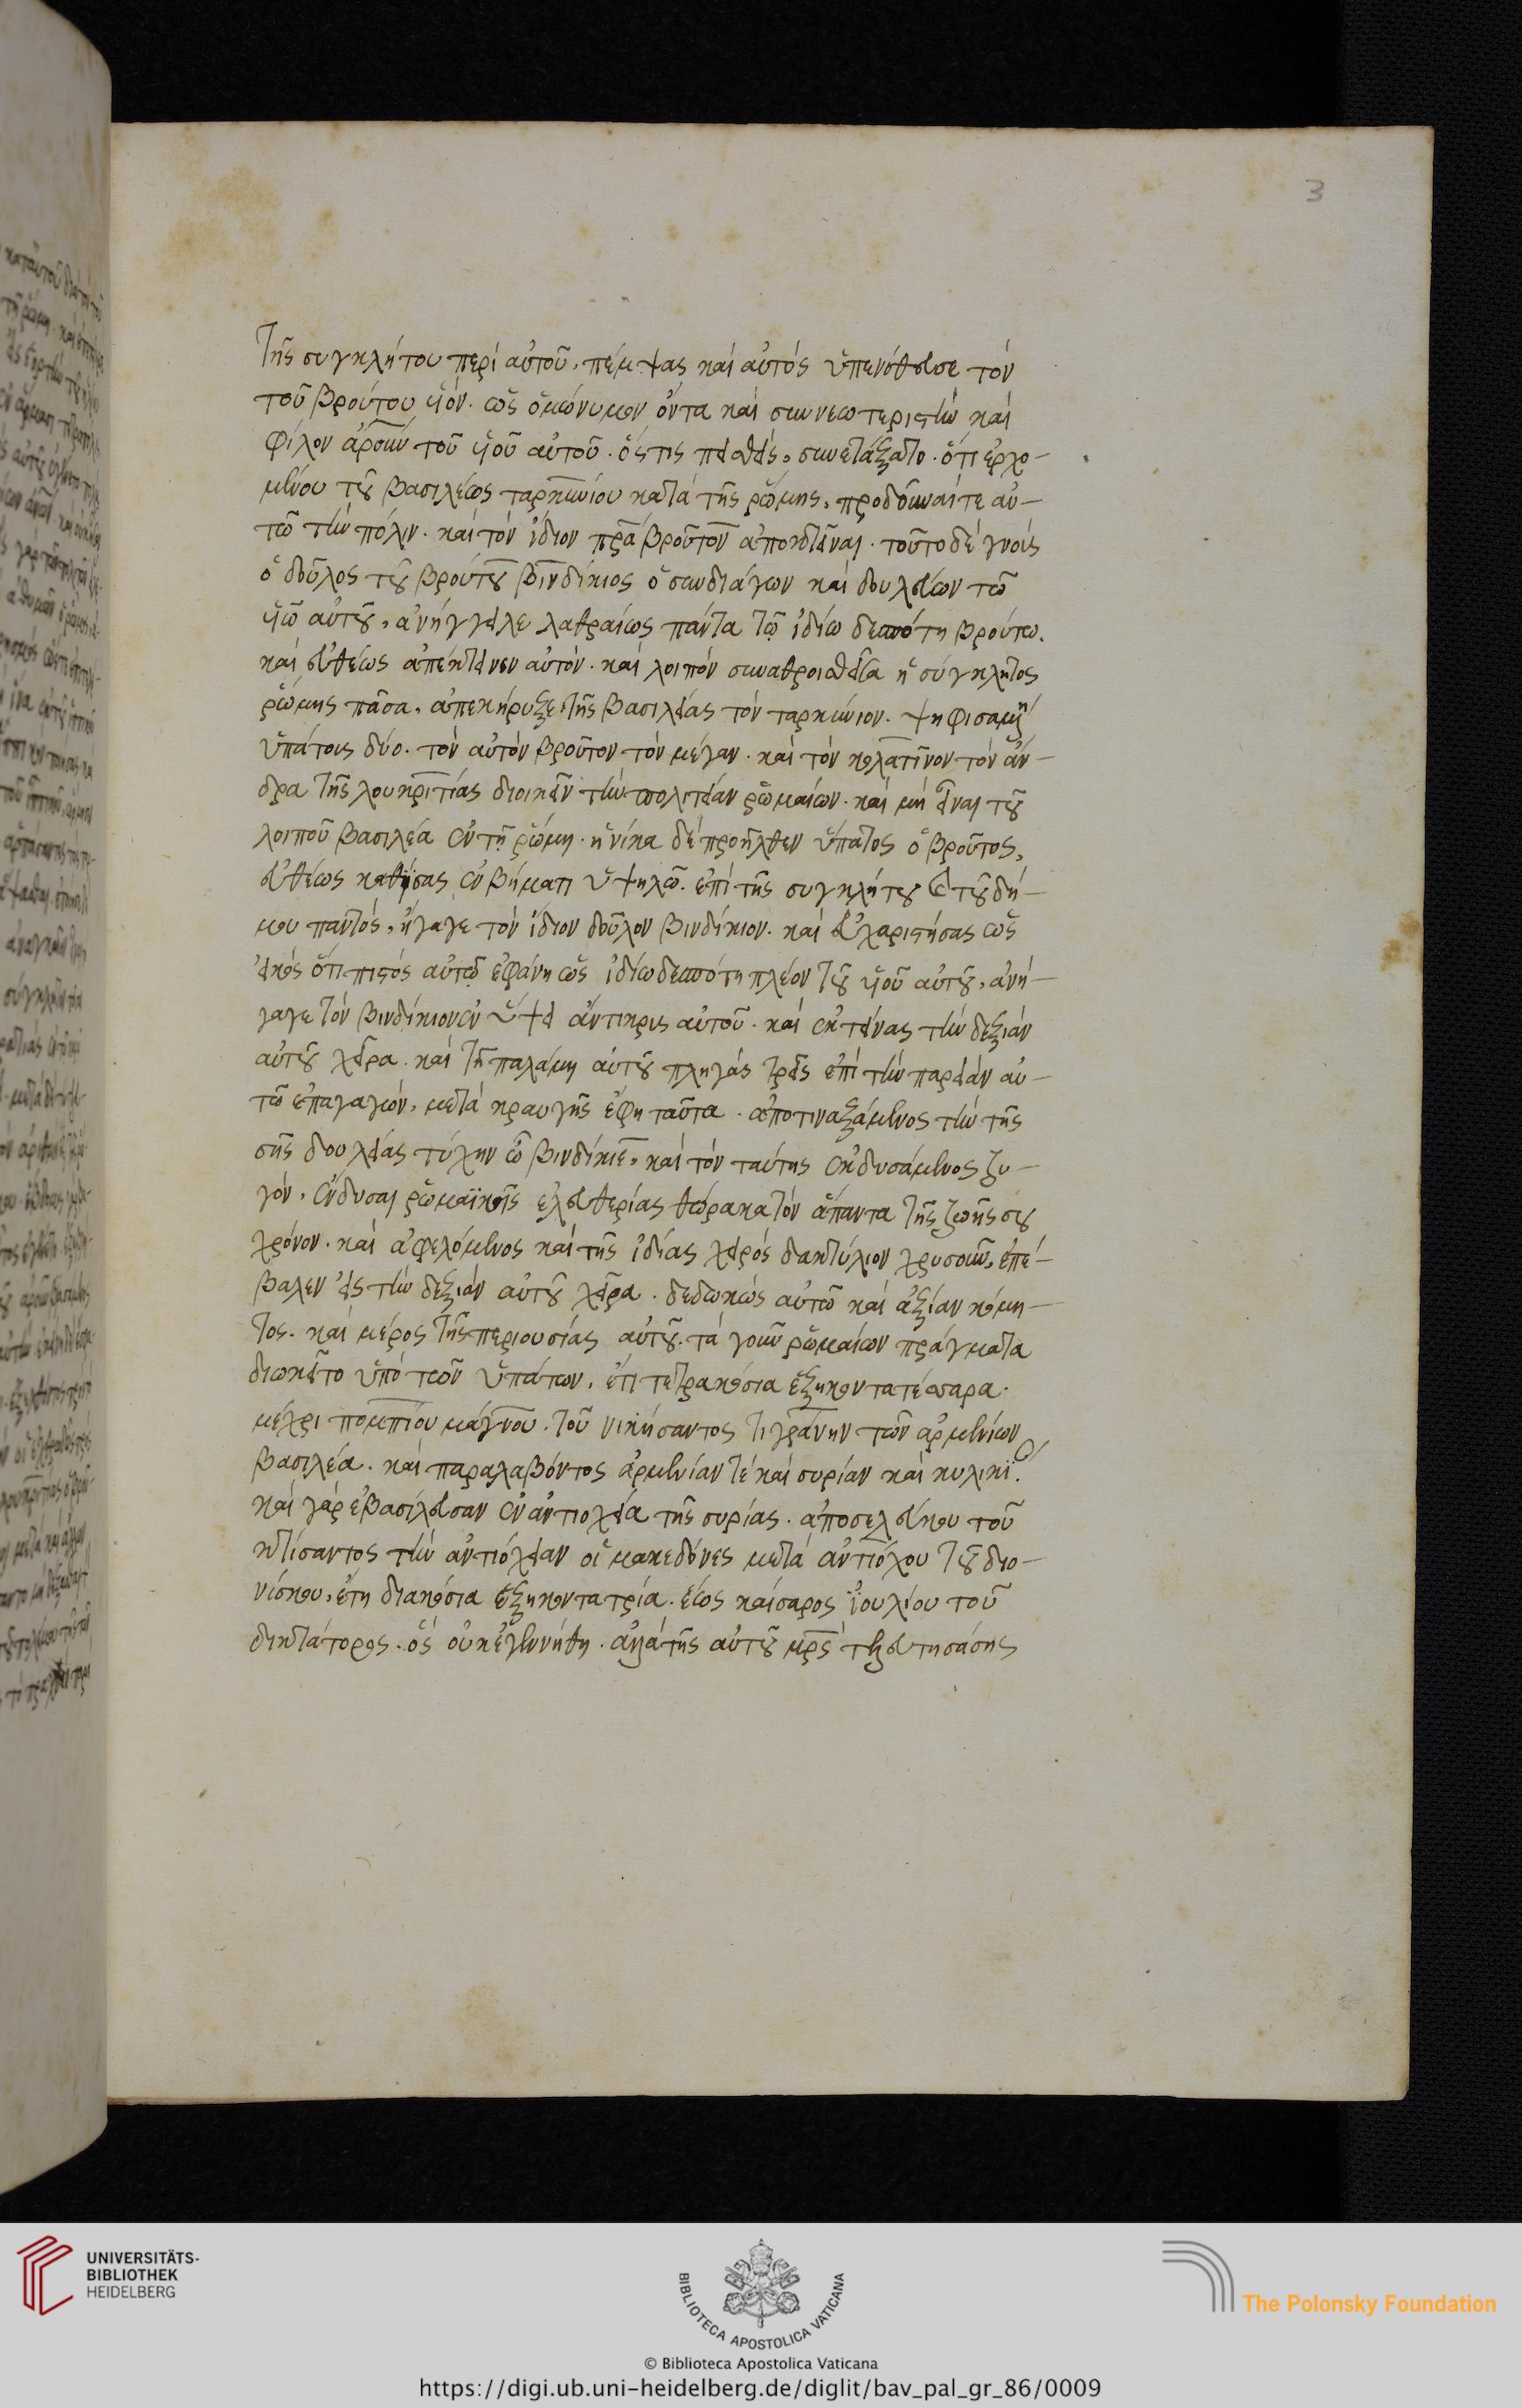 3
τῆς συγκλήτου περὶ αὐτοῦ, πέμψας καὶ αὐτὸς ὑπενόθευσε τὸν
τοῦ βρούτου υἱόν· ὡς ὁμώνυμον ὄντα καὶ συννεωτεριστὴν καὶ
φίλον ἀρσοὺν τοῦ υἱοῦ αὐτοῦ· ὅστις πεισθεὶς, συνετάξατο· ὅτι ἐρχο-
μένου τοῦ βασιλέως ταρκυνίου κατὰ τῆς ῥώμης, προδοῦναί τε αὐ-
τῶ τὴν πόλιν· καὶ τὸν ἴδιον πρα βροῦτον ἀποκτεῖναι· τοῦτο δὲ γνοὺς
ὁ δοῦλος τοῦ βρούτου βινδίκιος ὁ συνδιάγων καὶ δουλεύων τῶ
υἱῶ αὐτοῦ, ἀνήγγειλε λαθραίως πάντα τῶ ἰδίω δεσπότη βρούτω.
καὶ εὐθέως ἀπέκτεινεν αὐτόν· καὶ λοιπὸν συναθροισθεῖσα ἡ σύγκλητος
ῥώμης πᾶσα, ἀπεκήρυξε τῆς βασιλείας τὸν ταρκύνιον· ψηφισαμένη
ὑπάτους δύο· τὸν αὐτὸν βροῦτον τὸν μέγαν· καὶ τὸν κολατῖνον τὸν ἄν-
δρα τῆς λουκριτίας διοικεῖν τὴν πολιτείαν ῥωμαίων· καὶ μὴ εἶναι τοῦ
λοιποῦ βασιλέα ἐν τῆ ῥώμη· ἡνίκα δὲ προῆλθεν ὕπατος ὁ βροῦτος,
εὐθέως καθήσας ἐν βήματι ὑψηλῶ· ἐπὶ τῆς συγκλήτου καὶ τοῦ δή-
μου παντὸς, ἤγαγε τὸν ἴδιον δοῦλον βινδίκιον· καὶ εὐχαριστήσας ὡς
εἰκὸς ὅτι πιστὸς αὐτῶ ἐφάνη ὡς ἰδίω δεσπότη πλέον τοῦ υἱοῦ αὐτοῦ, ἀνή-
γαγε τὸν βινδίκιον ἐν ὕψει ἄντικρις αὐτοῦ· καὶ ἐκτείνας τὴν δεξιὰν
αὐτοῦ χεῖρα· καὶ τῆ παλάμη αὐτοῦ πληγὰς τρεῖς ἐπὶ τὴν παρειὰν αὐ-
τῶ ἐπαγαγὼν, μετὰ κραυγῆς ἔφη ταῦτα· ἀποτιναξάμενος τὴν τῆς
σῆς δουλείας τύχην ὦ βινδίκιε, καὶ τὸν ταύτης ἐκδυσάμενος ζυ-
γὸν, ἔνδυσαι ῥωμαϊκῆς ἐλευθερίας θώρακα τὸν ἅπαντα τῆς ζωῆς σου
χρόνον· καὶ ἀφελόμενος καὶ τῆς ἰδίας χειρὸς δακτύλιον χρυσοῦν, ἐπέ-
βαλεν εἰς τὴν δεξιὰν αὐτοῦ χεῖρα· δεδωκὼς αὐτῶ καὶ ἀξίαν κόμη-
τος· καὶ μέρος τῆς περιουσίας αὐτοῦ· τὰ γοῦν ῥωμαίων πράγματα
διωκεῖτο ὑπὸ τῶν ὑπάτων, ἔτι τετρακόσια ἑξηκοντατέσσαρα·
μέχρι πομπίου μάγνου· τοῦ νικήσαντος τιγράνην τῶν ἀρμενίων
βασιλέα· καὶ παραλαβόντος ἀρμενίαν τὲ καὶ συρίαν καὶ κυλικί.
καὶ γὰρ ἐβασίλευσαν ἐν ἀντιοχεία τῆς συρίας· ἀπὸ σελεύκου τοῦ
κτίσαντος τὴν ἀντιόχειαν οἱ μακεδόνες μετὰ ἀντιόχου τοῦ διο-
νίσκου, ἔτη διακόσια ἑξηκοντατρία· ἕως καίσαρος ἰουλίου τοῦ
δικτάτορος· ὃς οὐκ ἐγεννήθη· ἀλλὰ τῆς αὐτοῦ μρς τελευτησάσης
UNIVERSITÄTS-
BIBLIOTHEK
HEIDELBERG
BIBLIOTECA APOSTOLICA VATICANA
The Polonsky Foundation
© Biblioteca Apostolica Vaticana
https://digi.ub.uni-heidelberg.de/diglit/bav_pal_gr_86/0009